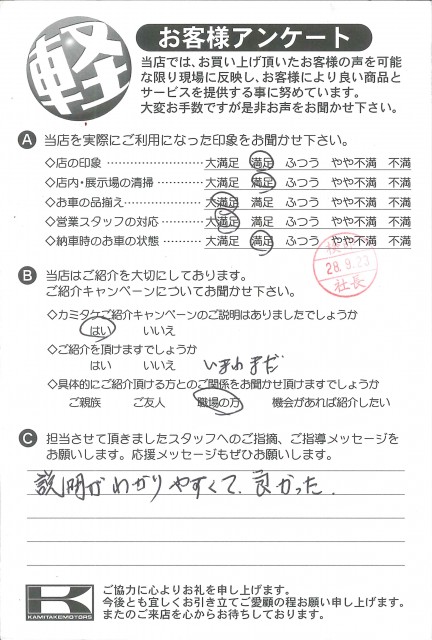 軽
お客様アンケート
当店では、お買い上げ頂いたお客様の声を可能
な限り現場に反映し、お客様により良い商品と
サービスを提供する事に努めています。
大変お手数ですが是非お声をお聞かせ下さい。
A 当店を実際にご利用になった印象をお聞かせ下さい。
◇店の印象 …………………… 大満足 満足 ふつう やや不満 不満
◇店内・展示場の清掃 ………… 大満足 満足 ふつう やや不満 不満
◇お車の品揃え ……………… 大満足 満足 ふつう やや不満 不満
◇営業スタッフの対応 ………… 大満足 満足 ふつう やや不満 不満
◇納車時のお車の状態 ………… 大満足 満足 ふつう やや不満 不満
28.9.23
社長
B 当店はご紹介を大切にしてあります。
ご紹介キャンペーンについてお聞かせ下さい。
◇カミタケご紹介キャンペーンのご説明はありましたでしょうか
はい いいえ
◇ご紹介を頂けますでしょうか
はい いいえ いまわまだ
◇具体的にご紹介頂ける方とのご関係をお聞かせ頂けますでしょうか
ご親族 ご友人 職場の方 機会があれば紹介したい
C 担当させて頂きましたスタッフへのご指摘、ご指導メッセージを
お願いします。応援メッセージもぜひお願いします。
説明がわかりやすくて、良かった.
K
KAMITAKEMOTORS
ご協力に心よりお礼を申し上げます。
今後とも宜しくお引き立てご愛顧の程お願い申し上げます。
またのご来店を心からお待ちしております。